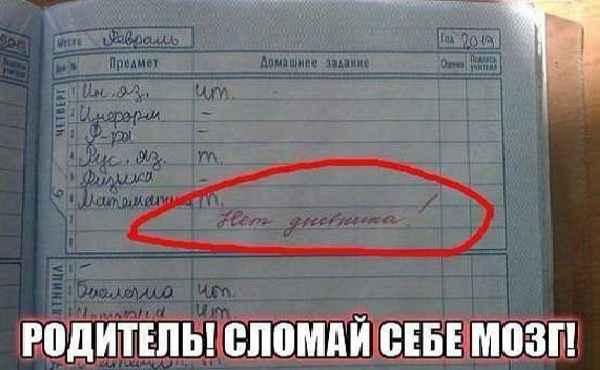 Месяц Февраль Год 2019
Предмет Домашнее задание Оценка Подпись учителя
ЧЕТВЕРГ
6
1 Ин. яз. чт.
2 Информ –
3 Ф-ра –
4 Рус. яз. т.
5 Физика –
6 Математика т.
7 Нет дневника!
8
ПЯТНИЦА
–
Биология чт.
чт.
РОДИТЕЛЬ! СЛОМАЙ СЕБЕ МОЗГ!